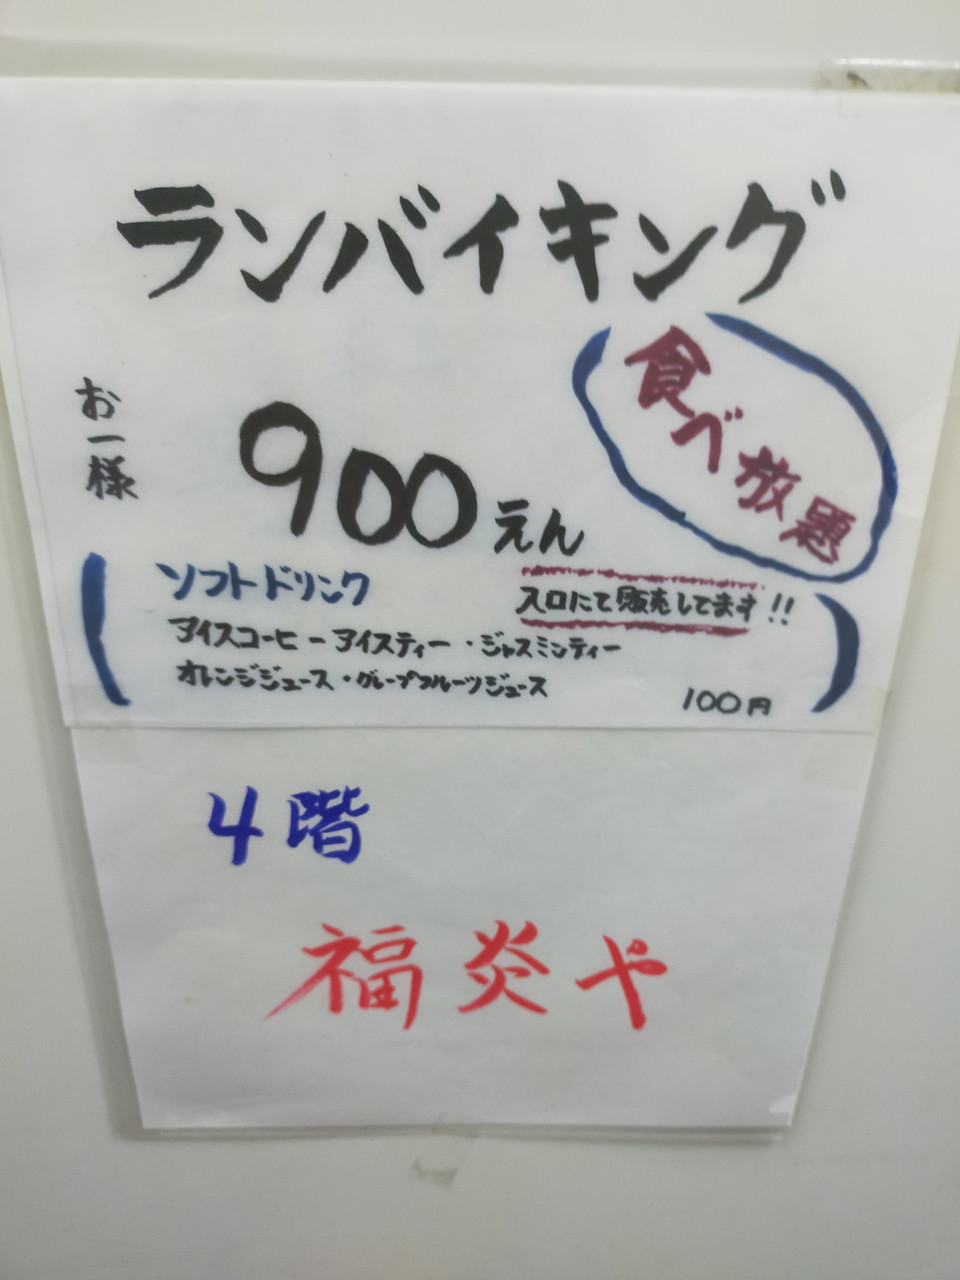 ランバイキング
食べ放題
お一様
900えん
ソフトドリンク
スロにて販売してます!!
アイスコーヒーアイスティー・ジャスミンティー
オレンジジュース・グレープフルーツジュース
100円
4階
福炎や